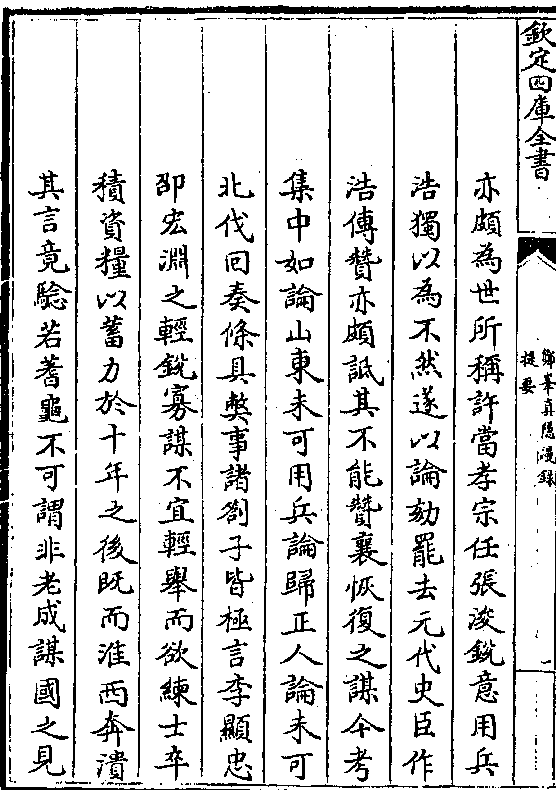 欽定四庫全書
鄮峯真隠漫録
提要
一
亦頗為世所稱許當孝宗任張浚鋭意用兵
浩獨以為不然遂以論劾罷去元代史臣作
浩傳贊亦頗詆其不能贊襄恢復之謀今考
集中如論山東未可用兵論歸正人論未可
北伐回奏條具獘事諸劄子皆極言李顯忠
邵宏淵之輕鋭寡謀不宜輕舉而欲練士卒
積資糧以蓄力於十年之後既而淮西奔潰
其言竟驗若蓍龜不可謂非老成謀國之見